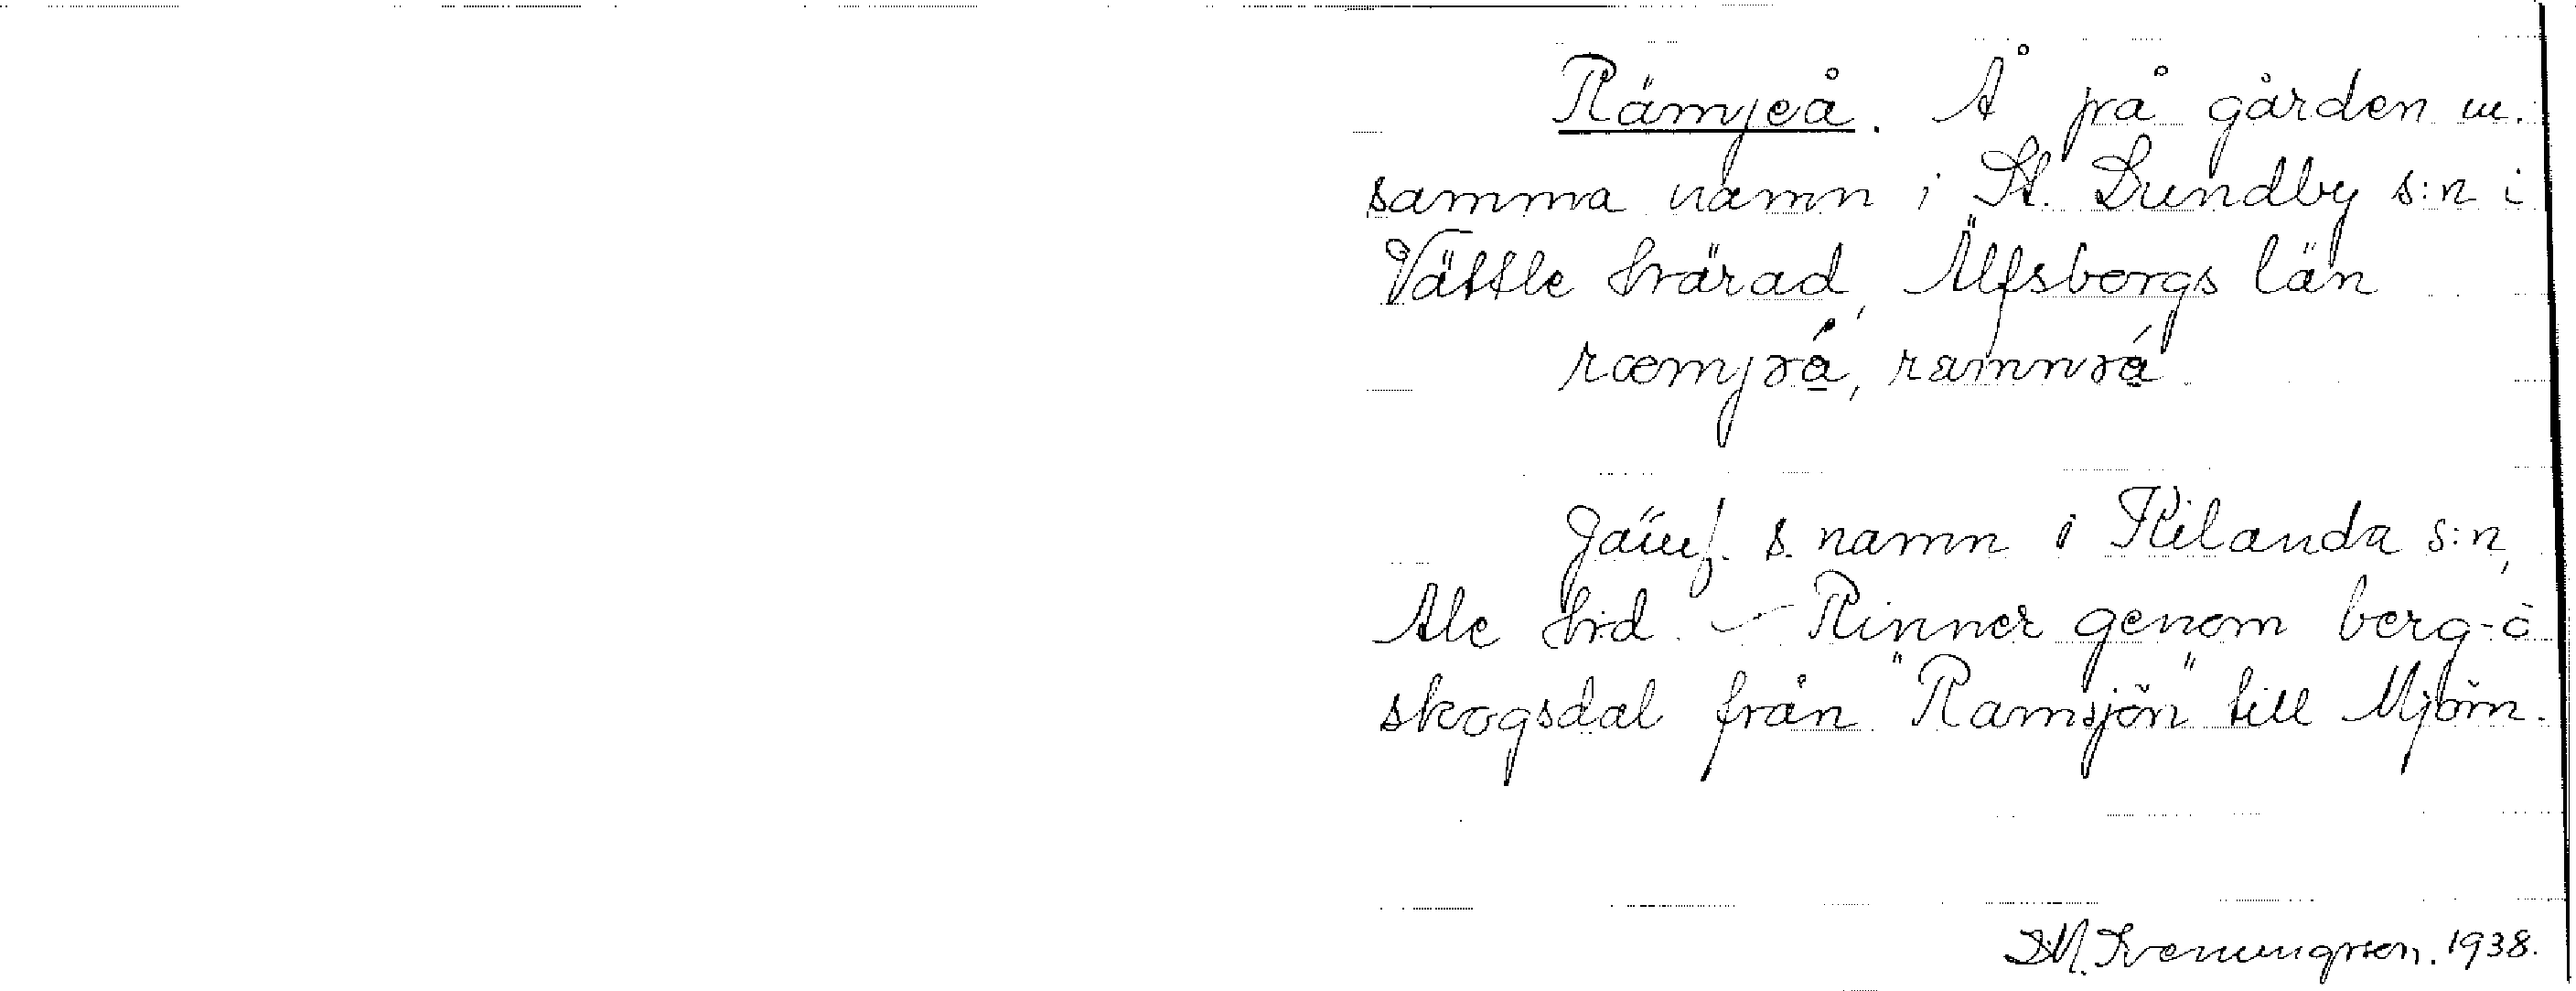 Rämjeå. Å på gården m.
samma namn i St. Lundby s:n i
Vättle härad, Älfsborgs län
ræmjɘǻ, ramnɘǻ
Jämf. s. namn i Kilanda s:n,
Ale hrd. – Rinner genom berg- o
skogsdal från "Ramsjön" till Mjörn.
D.M. Svenungsson. 1938.